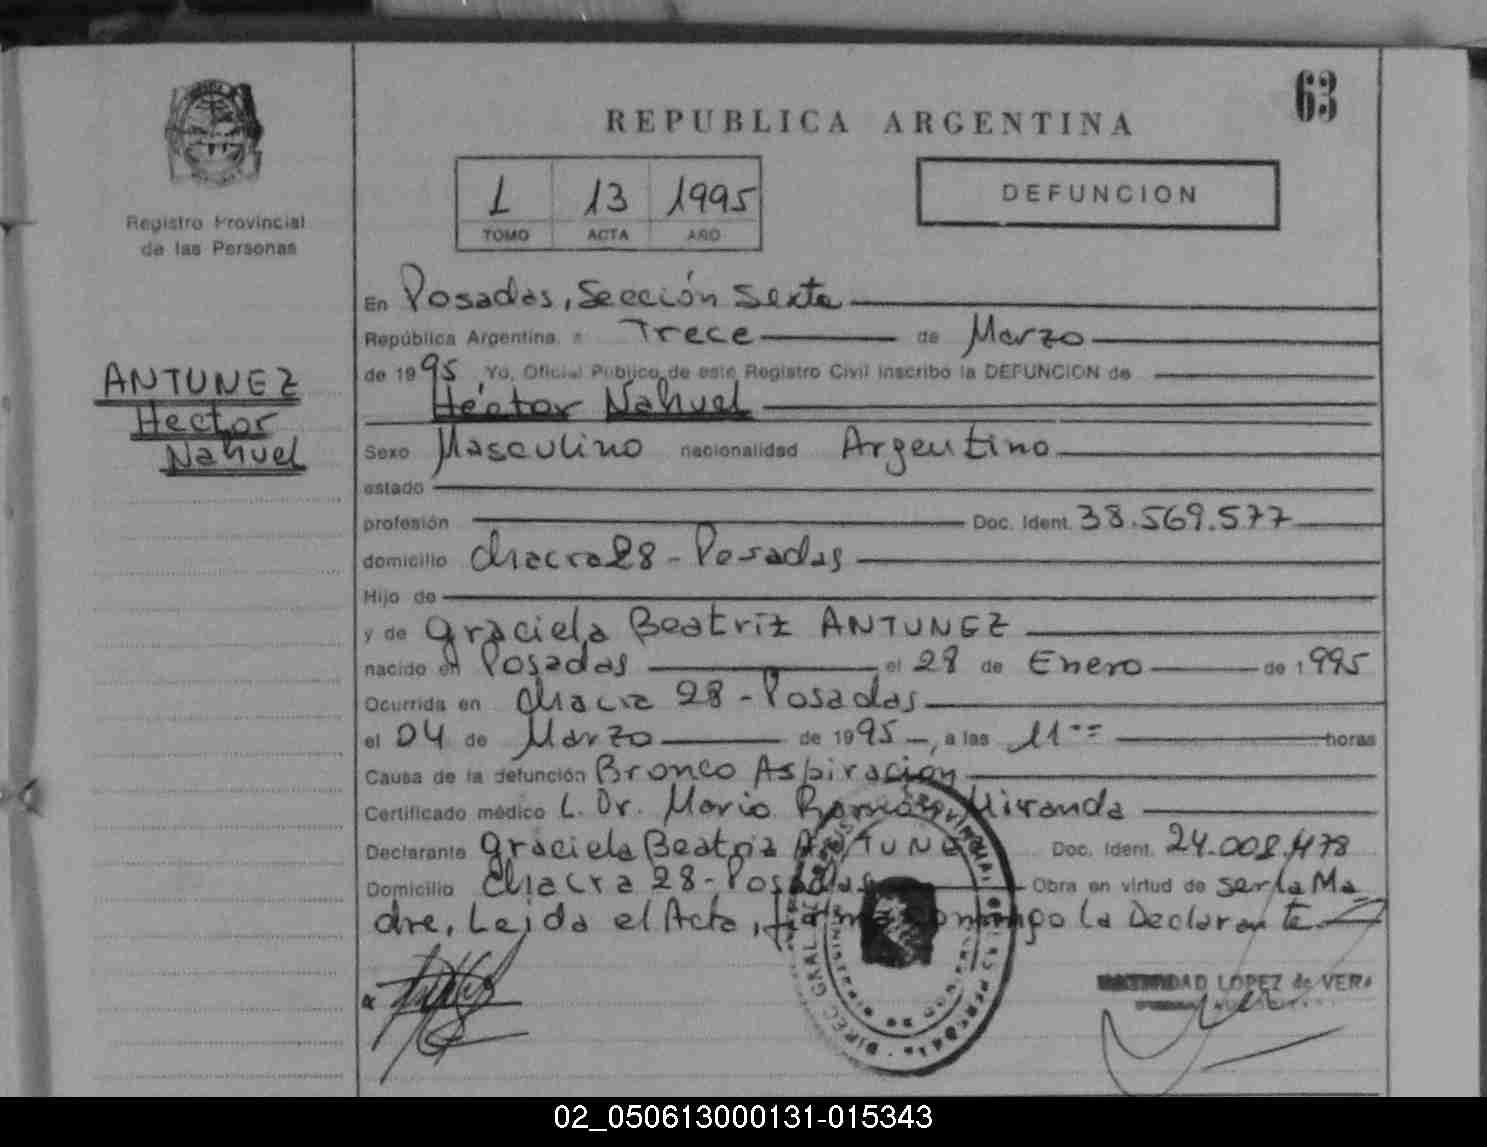 63
REPUBLICA ARGENTINA
Registro Provincial
de las Personas
1 13 1995
TOMO ACTA AÑO
DEFUNCION
ANTUNEZ
Hector
Nahuel
En Posadas, Sección Sexta
República Argentina, a Trece de Marzo
de 1995, Yo, Oficial Público de este Registro Civil inscribo la DEFUNCION de
Héctor Nahuel
Sexo Masculino nacionalidad Argentino
estado
profesión Doc. Ident. 38.569.577
domicilio Chacra 28 - Posadas
Hijo de
y de Graciela Beatriz ANTUNEZ
nacido en Posadas el 28 de Enero de 1995
Ocurrida en Chacra 28 - Posadas
el 04 de Marzo de 1995, a las 11 horas
Causa de la defunción Bronco Aspiración
Certificado médico L. Dr. Mario Miranda
Declarante Graciela Beatriz ANTUNEZ Doc. Ident. 24.008.478
Domicilio Chacra 28 - Posadas Obra en virtud de ser la Ma
dre, Leida el Acta, firma conmigo la Declarante
LOPEZ de VERA
02_050613000131-015343